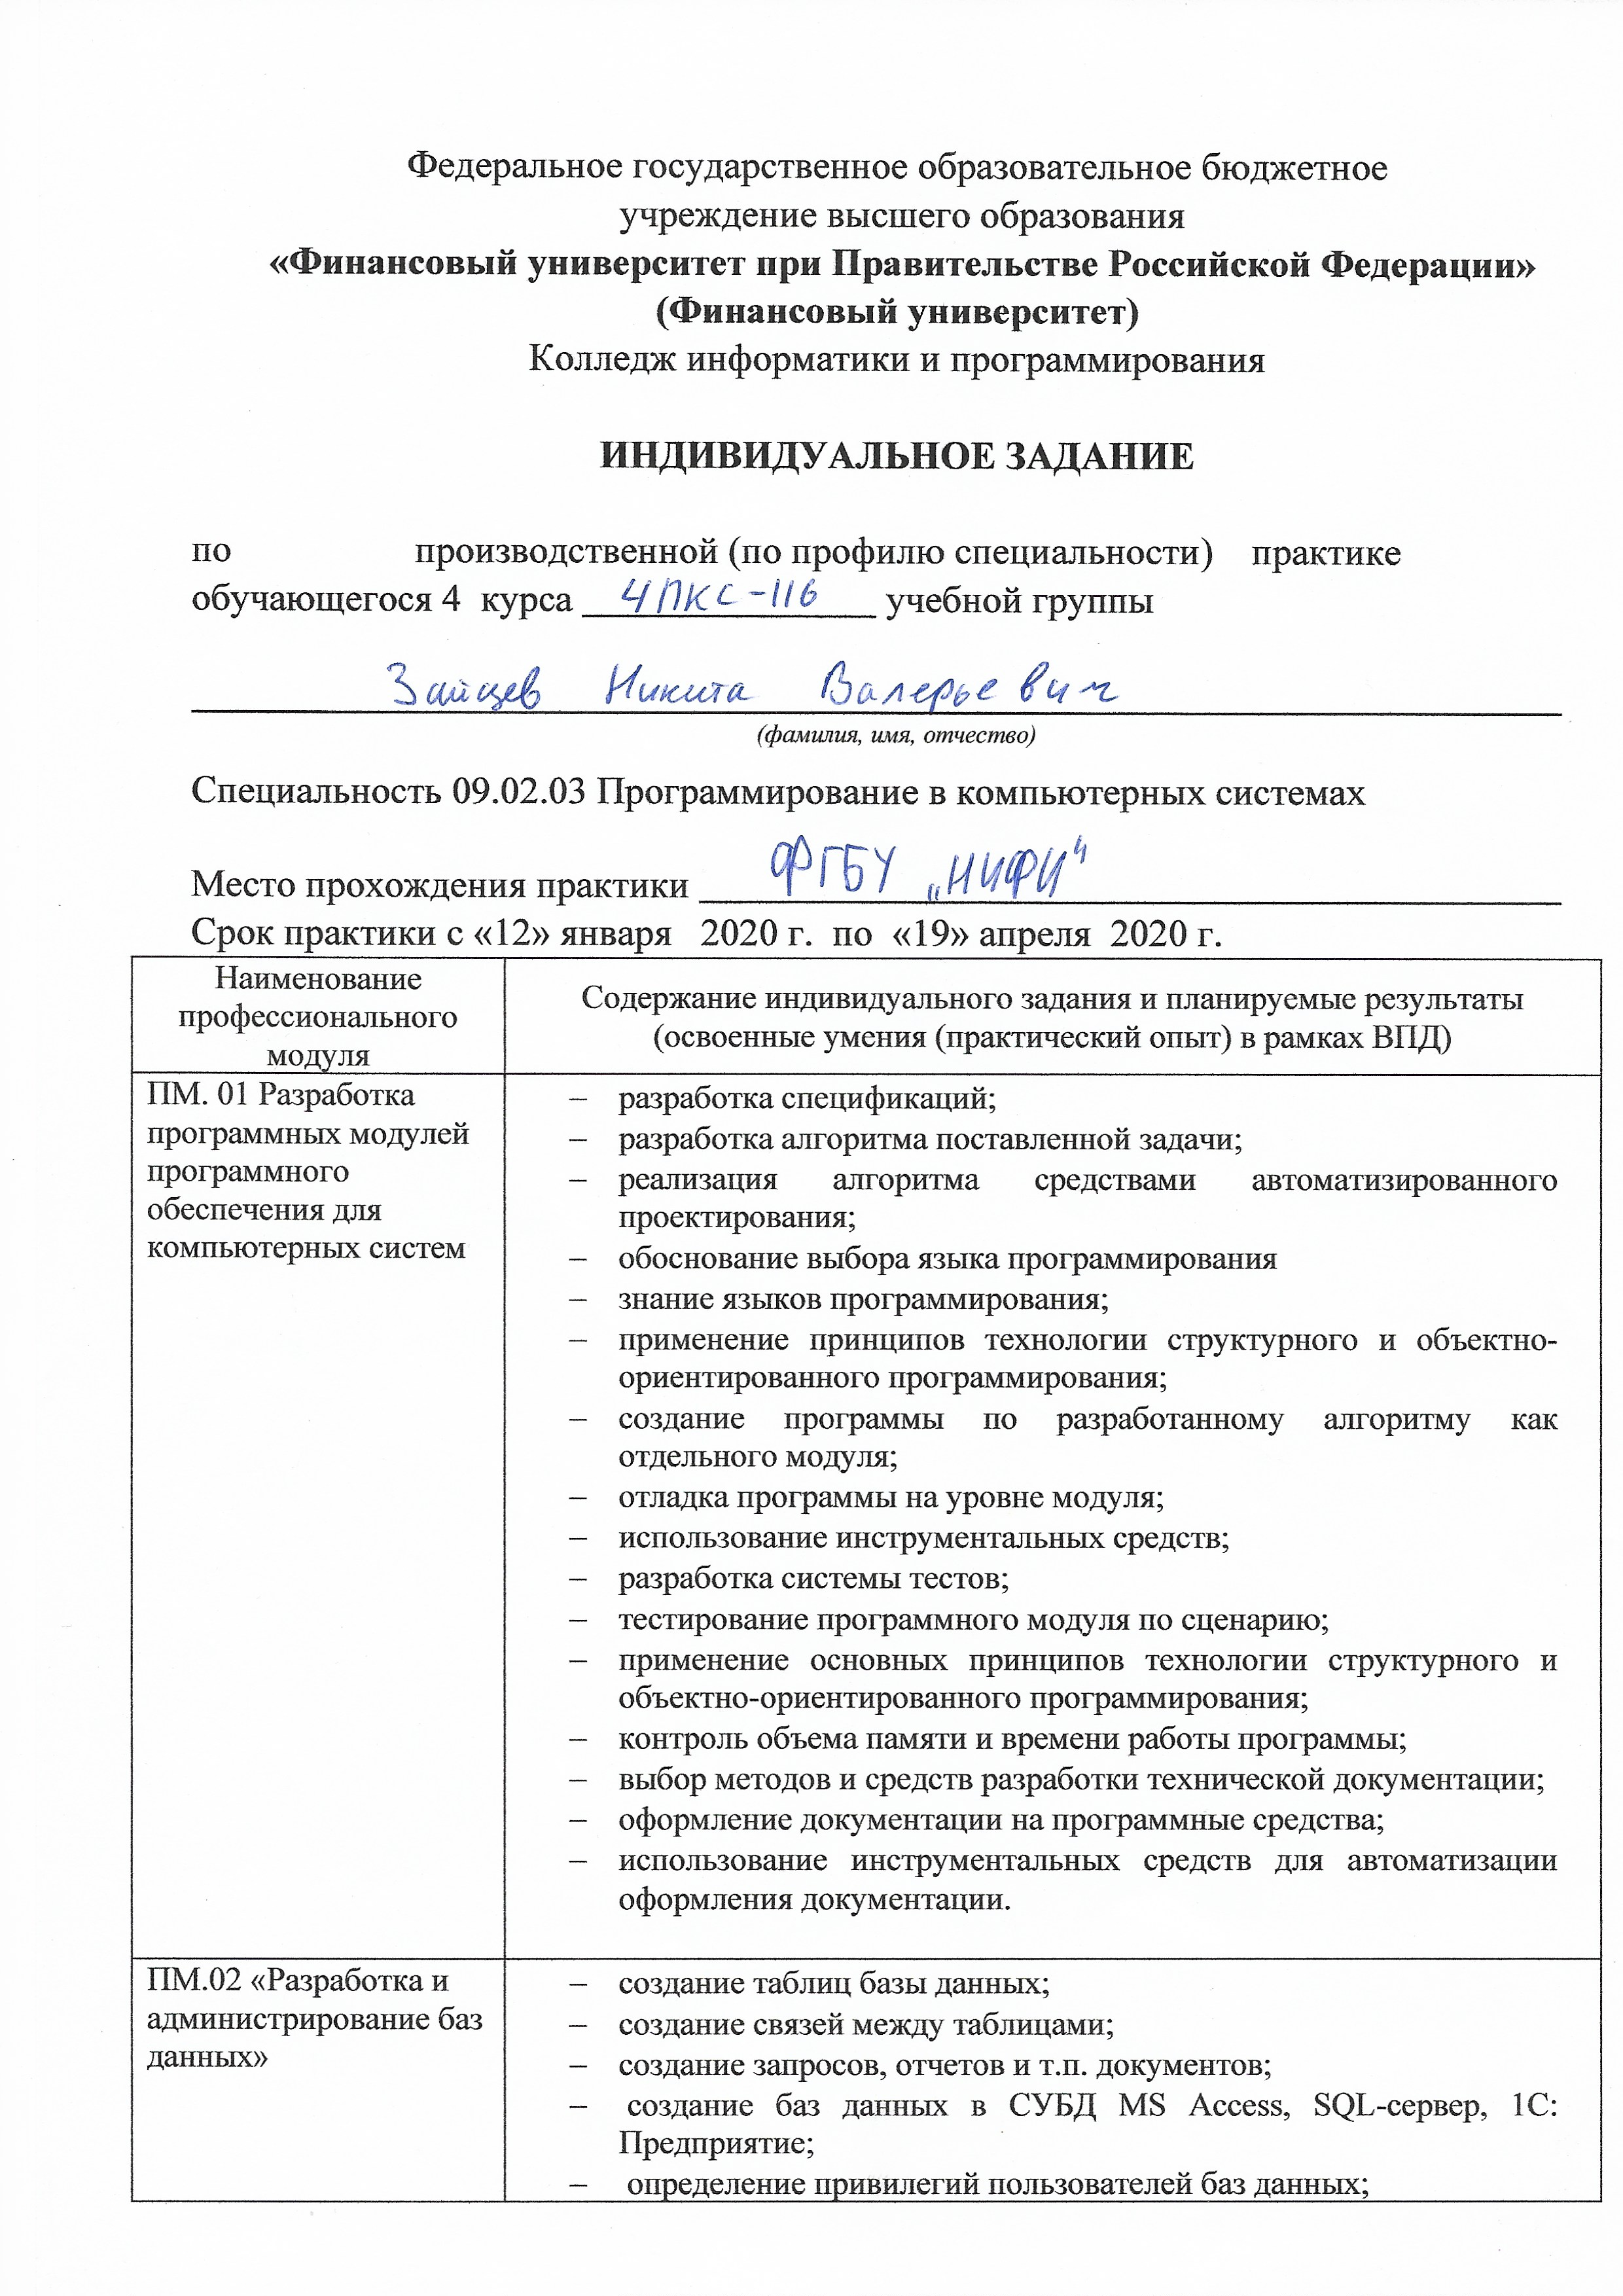 Федеральное государственное образовательное бюджетное
учреждение высшего образования
«Финансовый университет при Правительстве Российской Федерации»
(Финансовый университет)
Колледж информатики и программирования
ИНДИВИДУАЛЬНОЕ ЗАДАНИЕ
по производственной (по профилю специальности) практике
обучающегося 4 курса 4ПКС-116 учебной группы
Зайцев Никита Валерьевич
(фамилия, имя, отчество)
Специальность 09.02.03 Программирование в компьютерных системах
Место прохождения практики ФГБУ „НИФИ"
Срок практики с «12» января 2020 г. по «19» апреля 2020 г.
Наименование
профессионального
модуля
Содержание индивидуального задания и планируемые результаты
(освоенные умения (практический опыт) в рамках ВПД)
ПМ. 01 Разработка
программных модулей
программного
обеспечения для
компьютерных систем
– разработка спецификаций;
– разработка алгоритма поставленной задачи;
– реализация алгоритма средствами автоматизированного
проектирования;
– обоснование выбора языка программирования
– знание языков программирования;
– применение принципов технологии структурного и объектно-
ориентированного программирования;
– создание программы по разработанному алгоритму как
отдельного модуля;
– отладка программы на уровне модуля;
– использование инструментальных средств;
– разработка системы тестов;
– тестирование программного модуля по сценарию;
– применение основных принципов технологии структурного и
объектно-ориентированного программирования;
– контроль объема памяти и времени работы программы;
– выбор методов и средств разработки технической документации;
– оформление документации на программные средства;
– использование инструментальных средств для автоматизации
оформления документации.
ПМ.02 «Разработка и
администрирование баз
данных»
– создание таблиц базы данных;
– создание связей между таблицами;
– создание запросов, отчетов и т.п. документов;
– создание баз данных в СУБД MS Access, SQL-сервер, 1С:
Предприятие;
– определение привилегий пользователей баз данных;